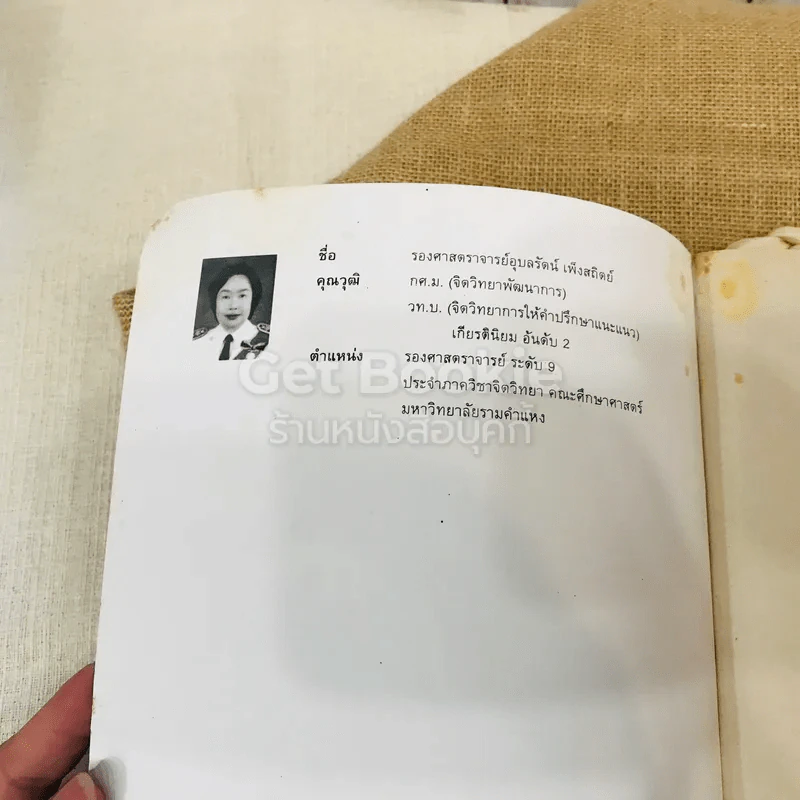 ชื่อ รองศาสตราจารย์อุบลรัตน์ เพ็งสถิตย์
คุณวุฒิ กศ.ม. (จิตวิทยาพัฒนาการ)
วท.บ. (จิตวิทยาการให้คำปรึกษาแนะแนว)
เกียรตินิยม อันดับ 2
ตำแหน่ง รองศาสตราจารย์ ระดับ 9
ประจำภาควิชาจิตวิทยา คณะศึกษาศาสตร์
มหาวิทยาลัยรามคำแหง
Get Bookie
ร้านหนังสือบุคกี้